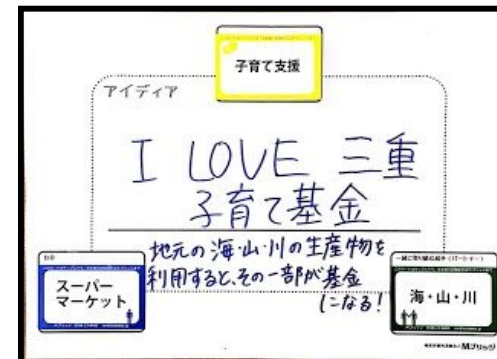 子育て支援
アイディア
I LOVE 三重
子育て基金
地元の海・山・川の生産物を
利用すると、その一部が基金
になる!
スーパー
マーケット
海・山・川
Mブリッジ